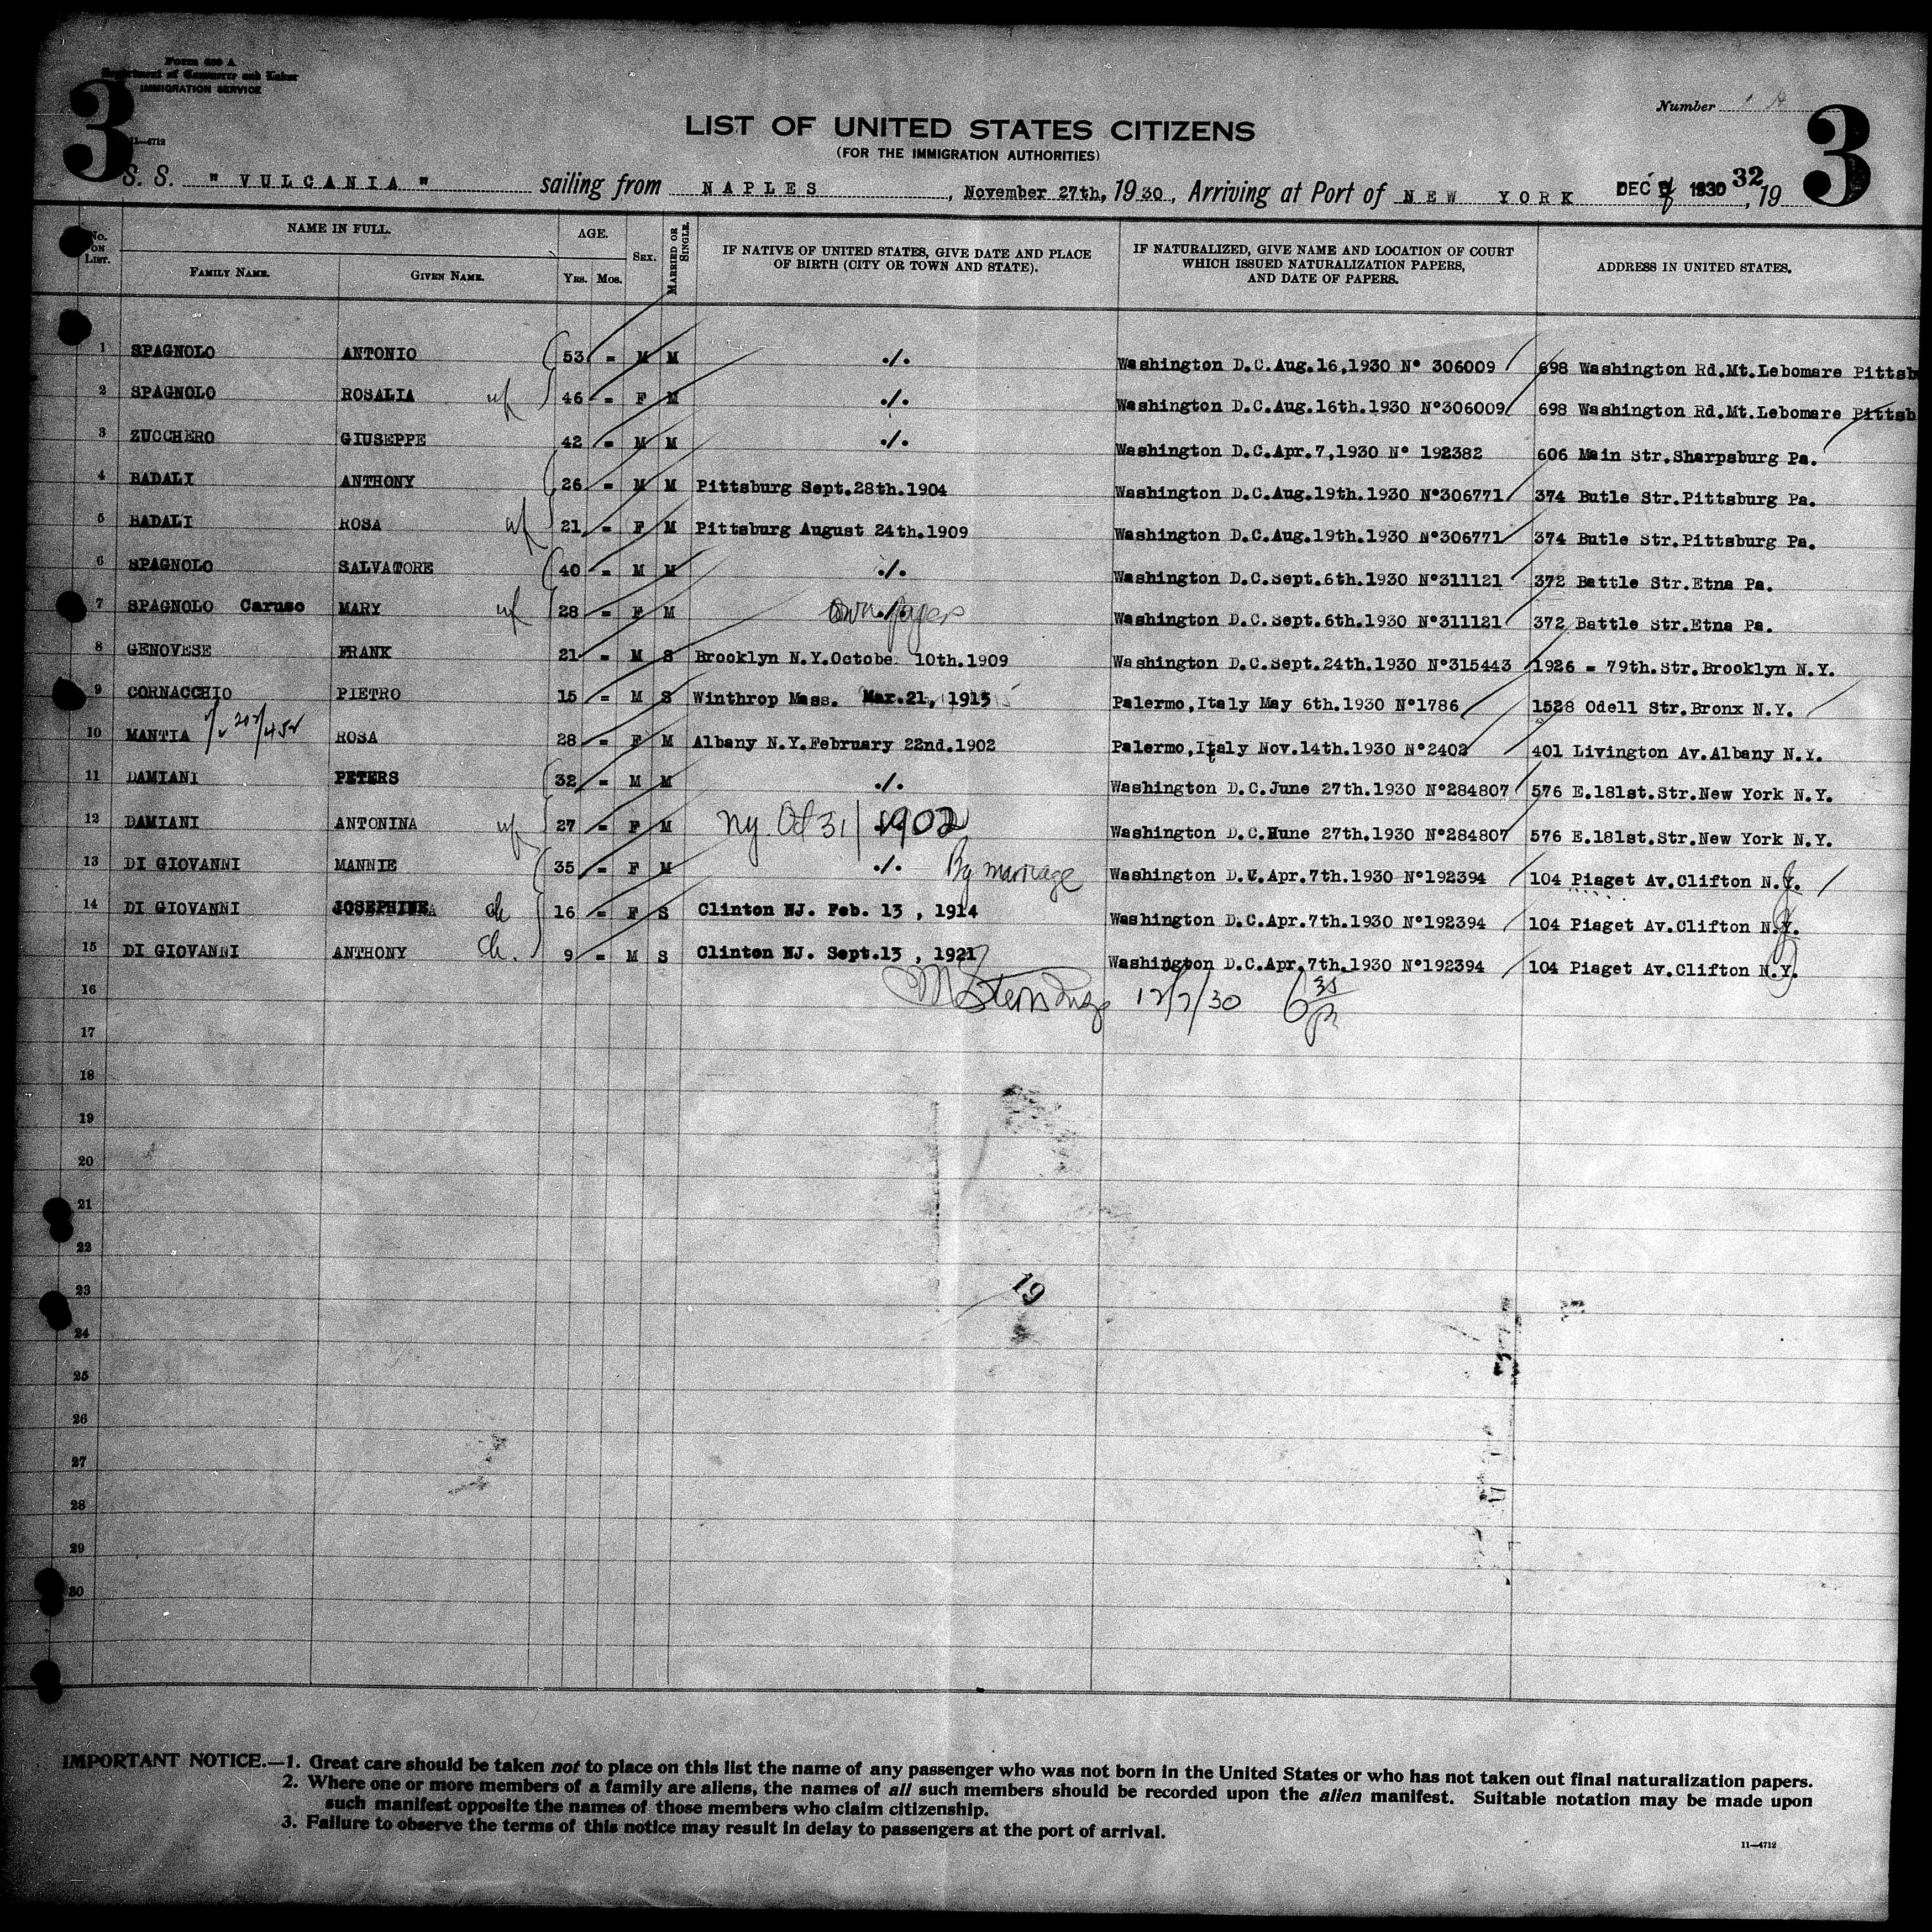 Form 630 A
Department of Commerce and Labor
IMMIGRATION SERVICE
3
11—4712
Number
3
LIST OF UNITED STATES CITIZENS
(FOR THE IMMIGRATION AUTHORITIES)
S. S. "VULCANIA" sailing from NAPLES, November 27th, 1930, Arriving at Port of NEW YORK DEC 1930 32, 19
No. ON LIST.
NAME IN FULL.
FAMILY NAME.
GIVEN NAME.
AGE.
YRS. MOS.
SEX.
MARRIED OR SINGLE.
IF NATIVE OF UNITED STATES, GIVE DATE AND PLACE OF BIRTH (CITY OR TOWN AND STATE).
IF NATURALIZED, GIVE NAME AND LOCATION OF COURT WHICH ISSUED NATURALIZATION PAPERS, AND DATE OF PAPERS.
ADDRESS IN UNITED STATES.
1 SPAGNOLO ANTONIO 53 = M M ./. Washington D.C.Aug.16,1930 Nº 306009 698 Washington Rd.Mt.Lebomare Pittsb
2 SPAGNOLO ROSALIA wf 46 = F M ./. Washington D.C.Aug.16th.1930 Nº306009 698 Washington Rd.Mt.Lebomare Pittsb
3 ZUCCHERO GIUSEPPE 42 = M M ./. Washington D.C.Apr.7,1930 Nº 192382 606 Main Str.Sharpsburg Pa.
4 BADALI ANTHONY 26 = M M Pittsburg Sept.28th.1904 Washington D.C.Aug.19th.1930 Nº306771 374 Butle Str.Pittsburg Pa.
5 BADALI ROSA wf 21 = F M Pittsburg August 24th.1909 Washington D.C.Aug.19th.1930 Nº306771 374 Butle Str.Pittsburg Pa.
6 SPAGNOLO SALVATORE 40 = M M ./. Washington D.C.Sept.6th.1930 Nº311121 372 Battle Str.Etna Pa.
7 SPAGNOLO Caruso MARY wf 28 = F M ./. own paper Washington D.C.Sept.6th.1930 Nº311121 372 Battle Str.Etna Pa.
8 GENOVESE FRANK 21 = M S Brooklyn N.Y.Octobe 10th.1909 Washington D.C.Sept.24th.1930 Nº315443 1926 = 79th.Str.Brooklyn N.Y.
9 CORNACCHIO PIETRO 15 = M S Winthrop Mass. Mar.21, 1915 Palermo,Italy May 6th.1930 Nº1786 1528 Odell Str.Bronx N.Y.
10 MANTIA ROSA 28 = F M Albany N.Y.February 22nd.1902 Palermo,Italy Nov.14th.1930 Nº2402 401 Livington Av.Albany N.Y.
11 DAMIANI PETERS 32 = M M ./. Washington D.C.June 27th.1930 Nº284807 576 E.181st.Str.New York N.Y.
12 DAMIANI ANTONINA wf 27 = F M ny. Oct 31 1902 Washington D.C.Hune 27th.1930 Nº284807 576 E.181st.Str.New York N.Y.
13 DI GIOVANNI MANNIE 35 = F M ./. By marriage Washington D.C.Apr.7th.1930 Nº192394 104 Piaget Av.Clifton N.J.
14 DI GIOVANNI JOSEPHINE ch 16 = F S Clinton NJ. Feb. 13 , 1914 Washington D.C.Apr.7th.1930 Nº192394 104 Piaget Av.Clifton N.J.
15 DI GIOVANNI ANTHONY ch. 9 = M S Clinton NJ. Sept.13 , 1921 Washington D.C.Apr.7th.1930 Nº192394 104 Piaget Av.Clifton N.Y.
16 12/7/30
17
18
19
20
21
22
23
19
24
25
26
27
28
29
30
IMPORTANT NOTICE.—1. Great care should be taken not to place on this list the name of any passenger who was not born in the United States or who has not taken out final naturalization papers.
2. Where one or more members of a family are aliens, the names of all such members should be recorded upon the alien manifest. Suitable notation may be made upon
such manifest opposite the names of those members who claim citizenship.
3. Failure to observe the terms of this notice may result in delay to passengers at the port of arrival.
11—4712